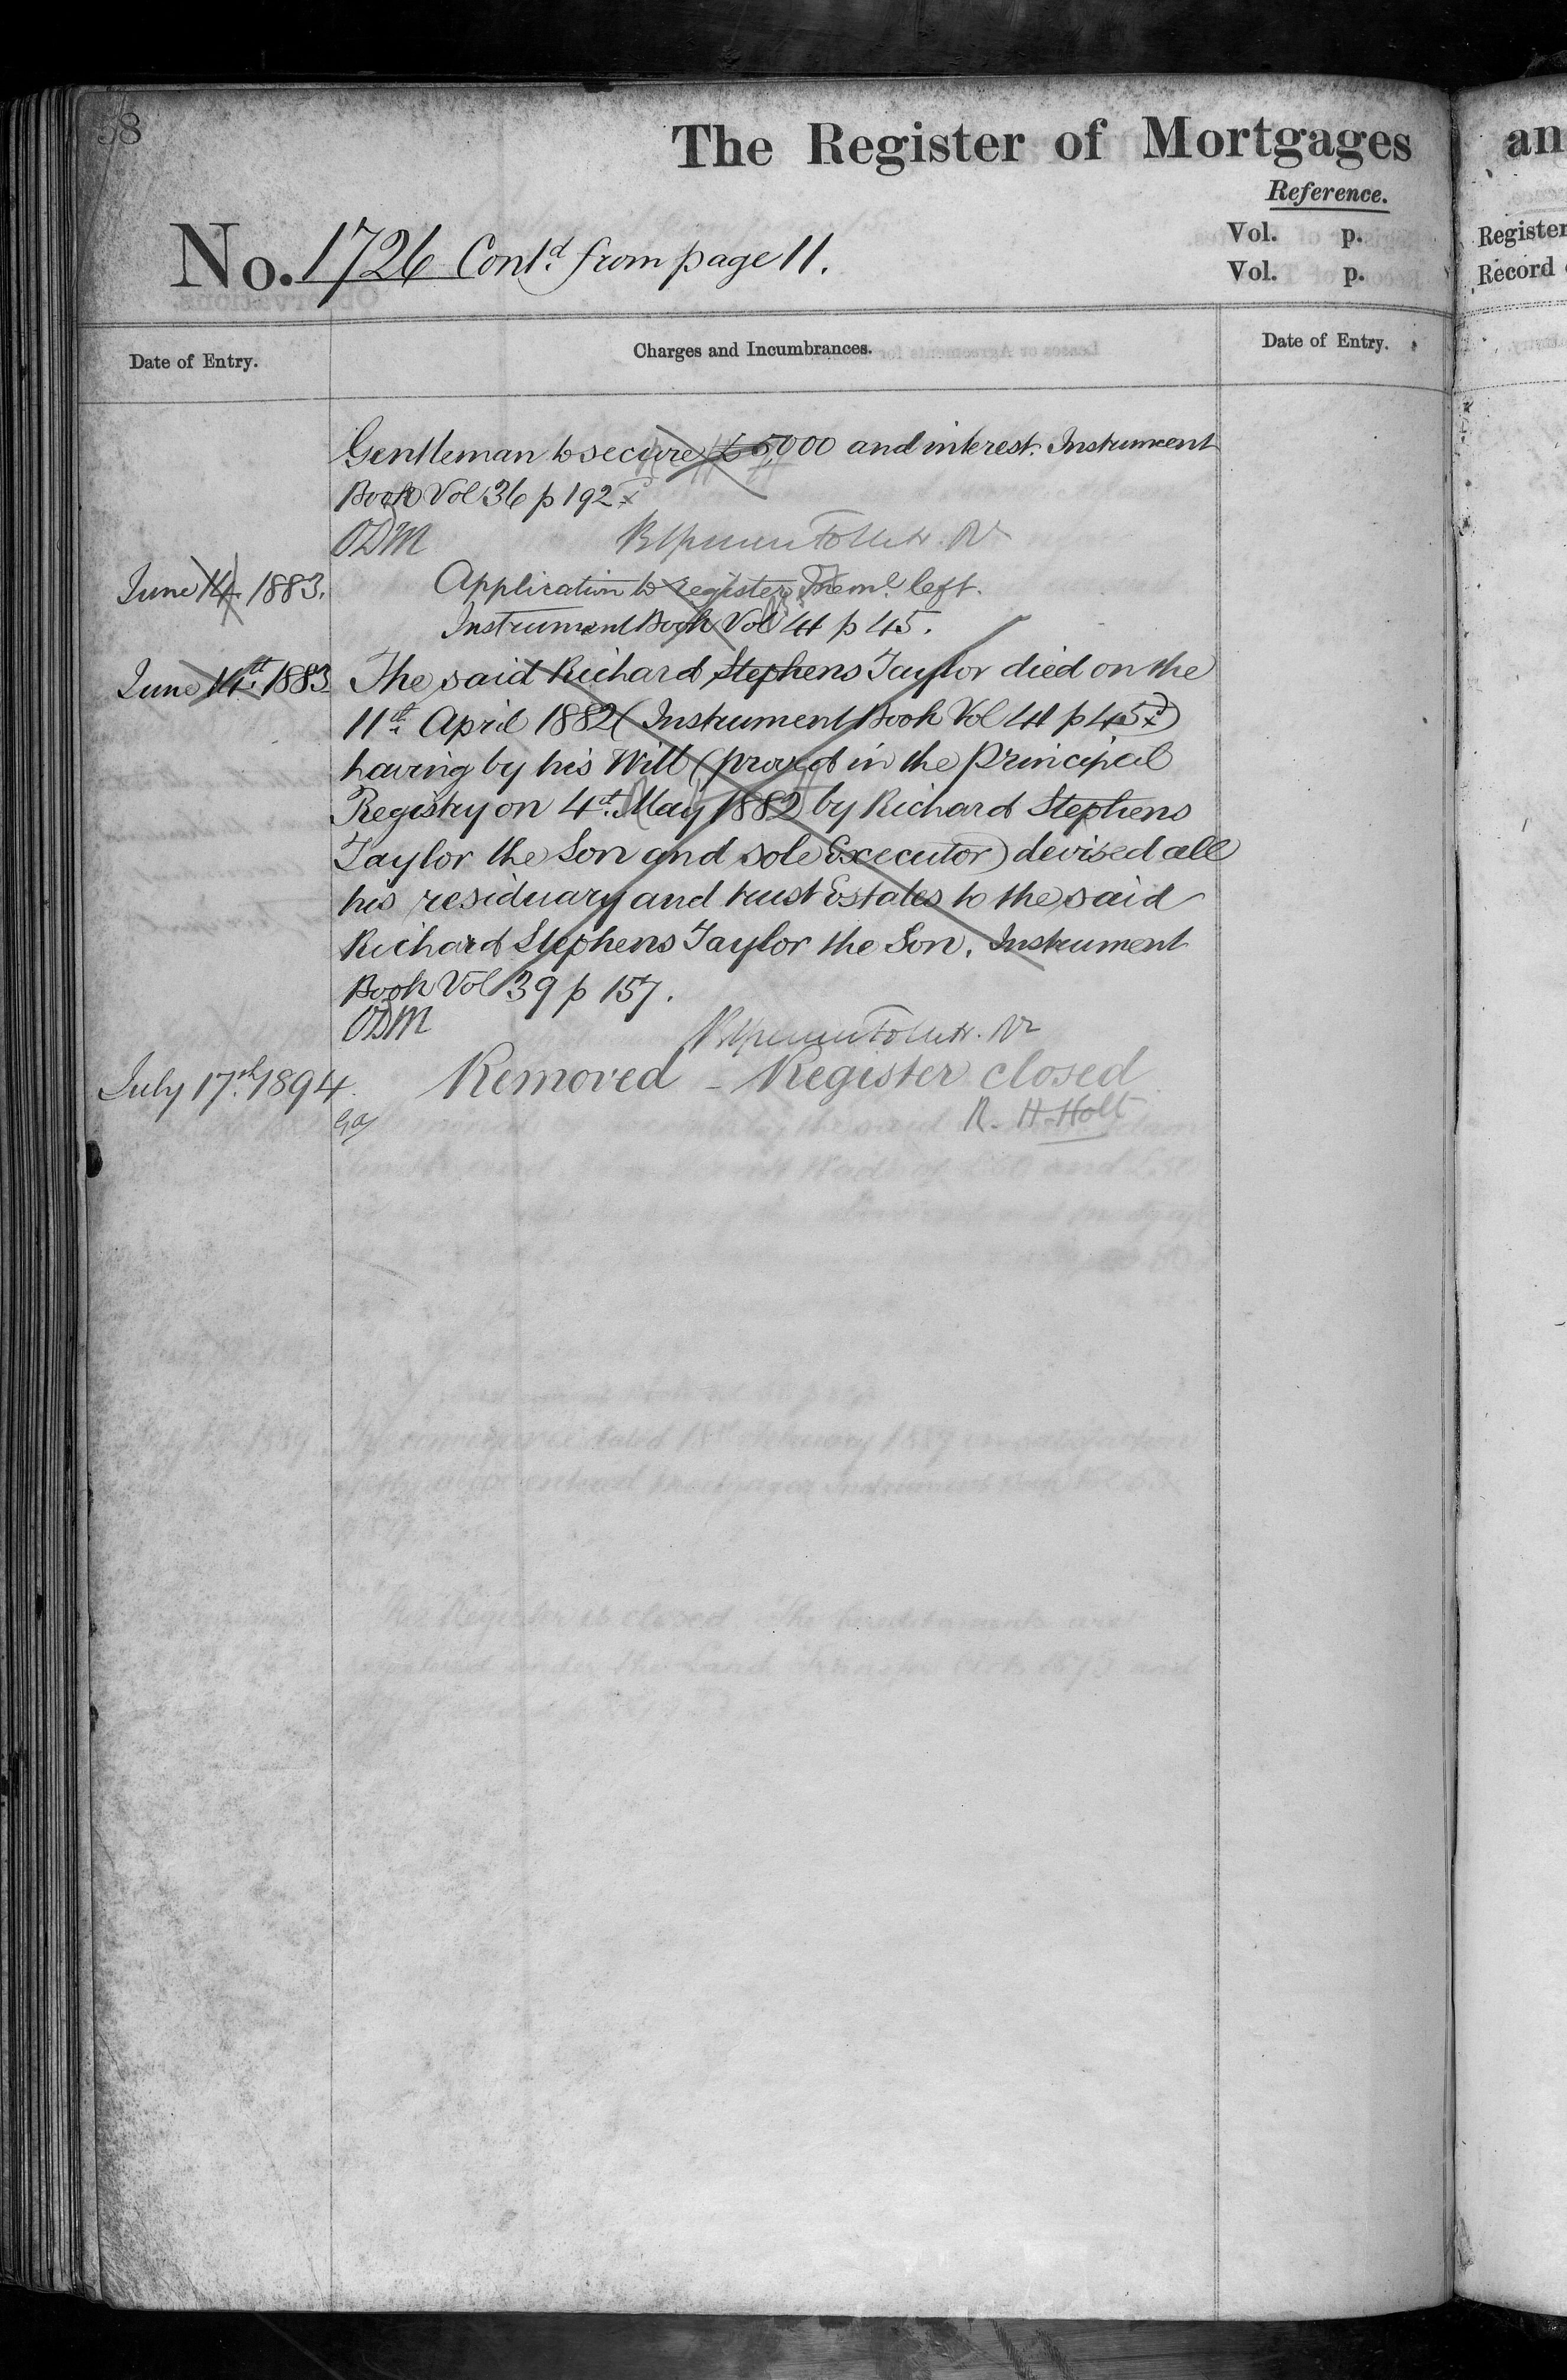 58
The Register of Mortgages
an
Reference.
Vol. p.
Vol. p.
Register
Record
No. 1726 Contd. from page 11.
Date of Entry.
Charges and Incumbrances.
Date of Entry.
Gentleman to secure £5,000 and interest. Instrument
Book Vol 36 p 192
ODM
June 14 1883.
Application to register left.
Instrument Book Vol 41 p 45.
June 14th 1883
The said Richard Stephens Taylor died on the
11th April 1882 (Instrument Book Vol 41 p 45)
having by his Will (proved in the Principal
Registry on 4th May 1882 by Richard Stephens
Taylor the Son and sole Executor) devised all
his residuary and trust Estates to the said
Richard Stephens Taylor the Son. Instrument
Book Vol 39 p 157.
ODM
July 17th 1894.
Removed - Register closed
R. H. Holt